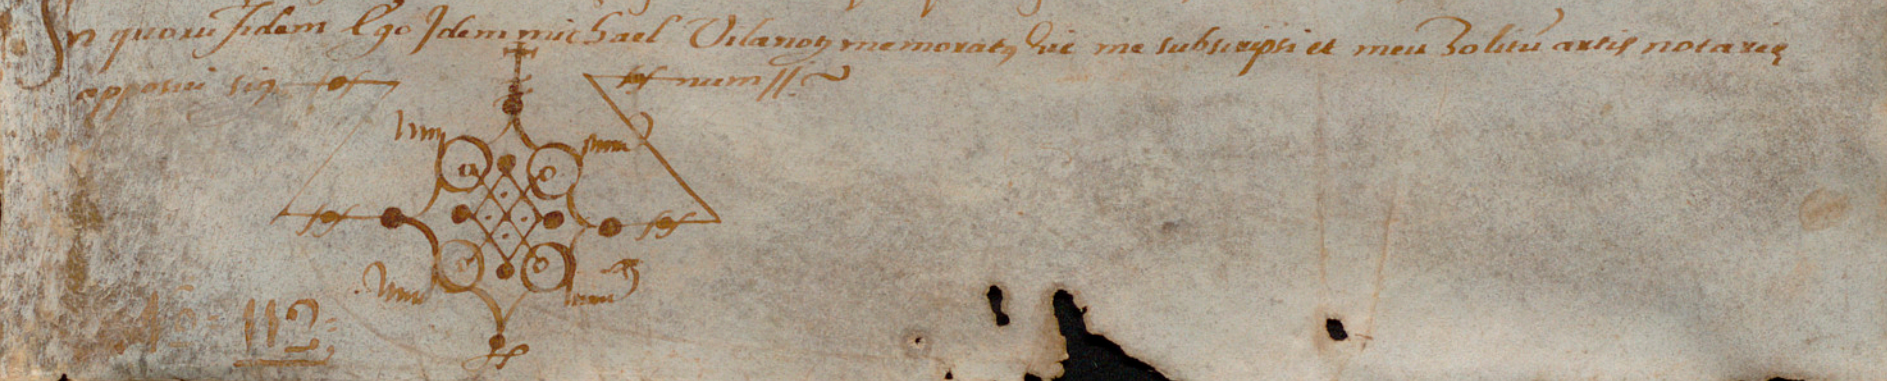 In quoru fidem Ego Idem michael Vilanoɋ memoratɋ hic me subscripsi et meu solitu artis notarie
apposui sig num
Nº 112